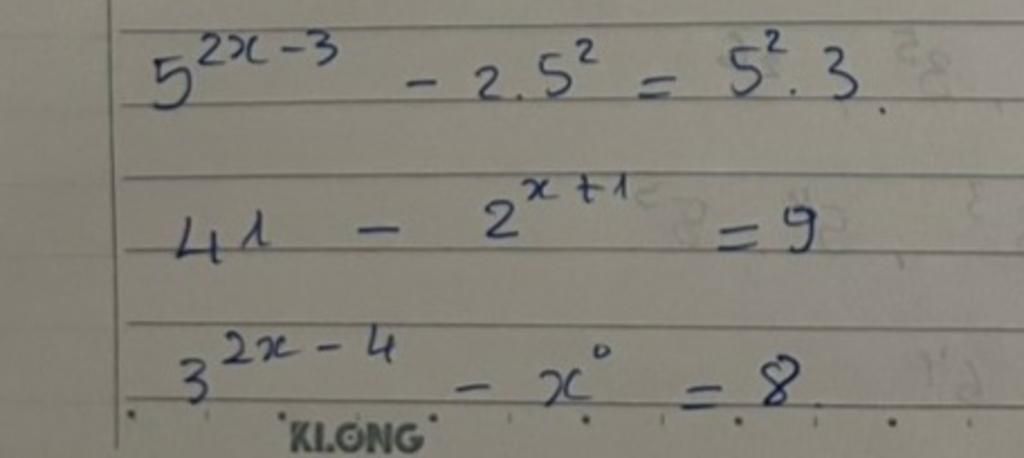 5^{2x-3} - 2.5^2 = 5^2.3.
41 - 2^{x+1} = 9
3^{2x-4} - x^0 = 8
KLONG